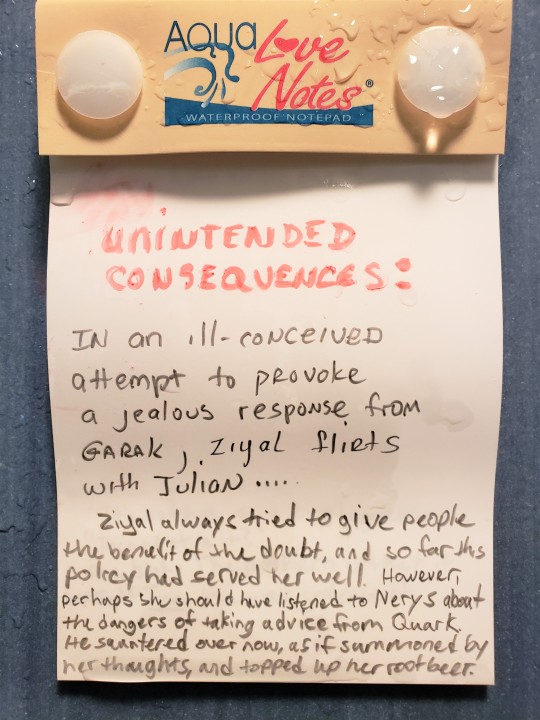 AQUA Love Notes®
WATERPROOF NOTEPAD
UNINTENDED
CONSEQUENCES:
IN an ill-CONCEIVED
attempt to PROVOKE
a jealous response from
GARAK, Ziyal flirts
with Julian ....
Ziyal always tried to give people
the benefit of the doubt, and so far this
policy had served her well. However,
perhaps she should have listened to Nerys about
the dangers of taking advice from Quark.
He sauntered over now, as if summoned by
her thoughts, and topped up her rootbeer.